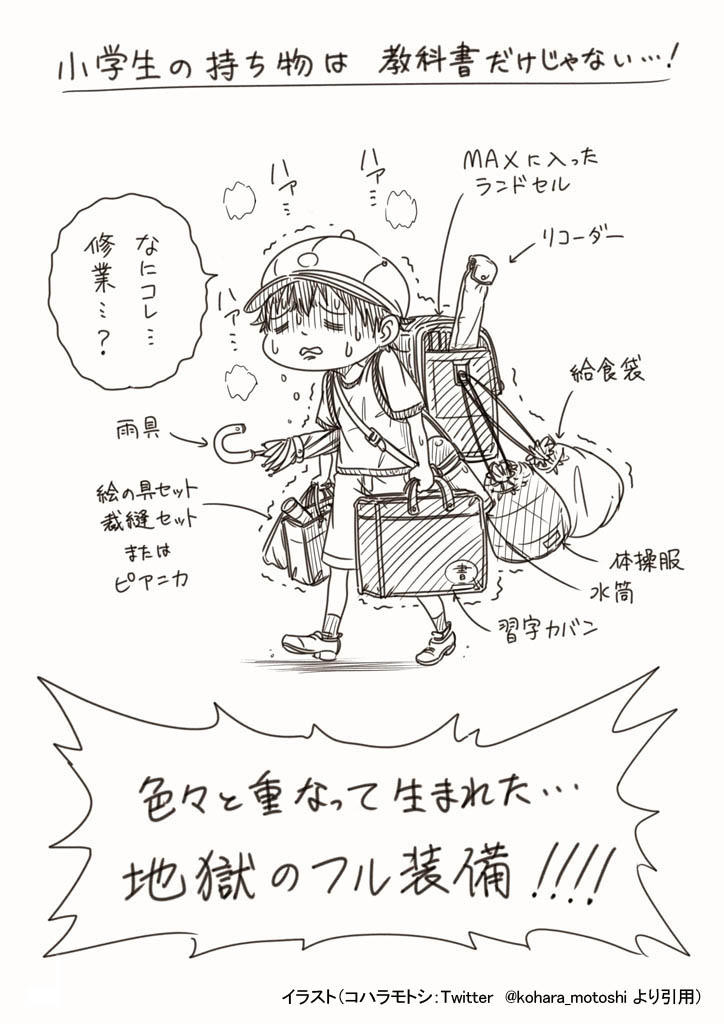 小学生の持ち物は 教科書だけじゃない…!
MAXに入った
ランドセル
リコーダー
ハァ…
ハァ…
ハァ…
なにコレ…
修業…?
給食袋
雨具
絵の具セット
裁縫セット
または
ピアニカ
体操服
水筒
書
習字カバン
色々と重なって生まれた…
地獄のフル装備!!!!
イラスト(コハラモトシ:Twitter @kohara_motoshi より引用)